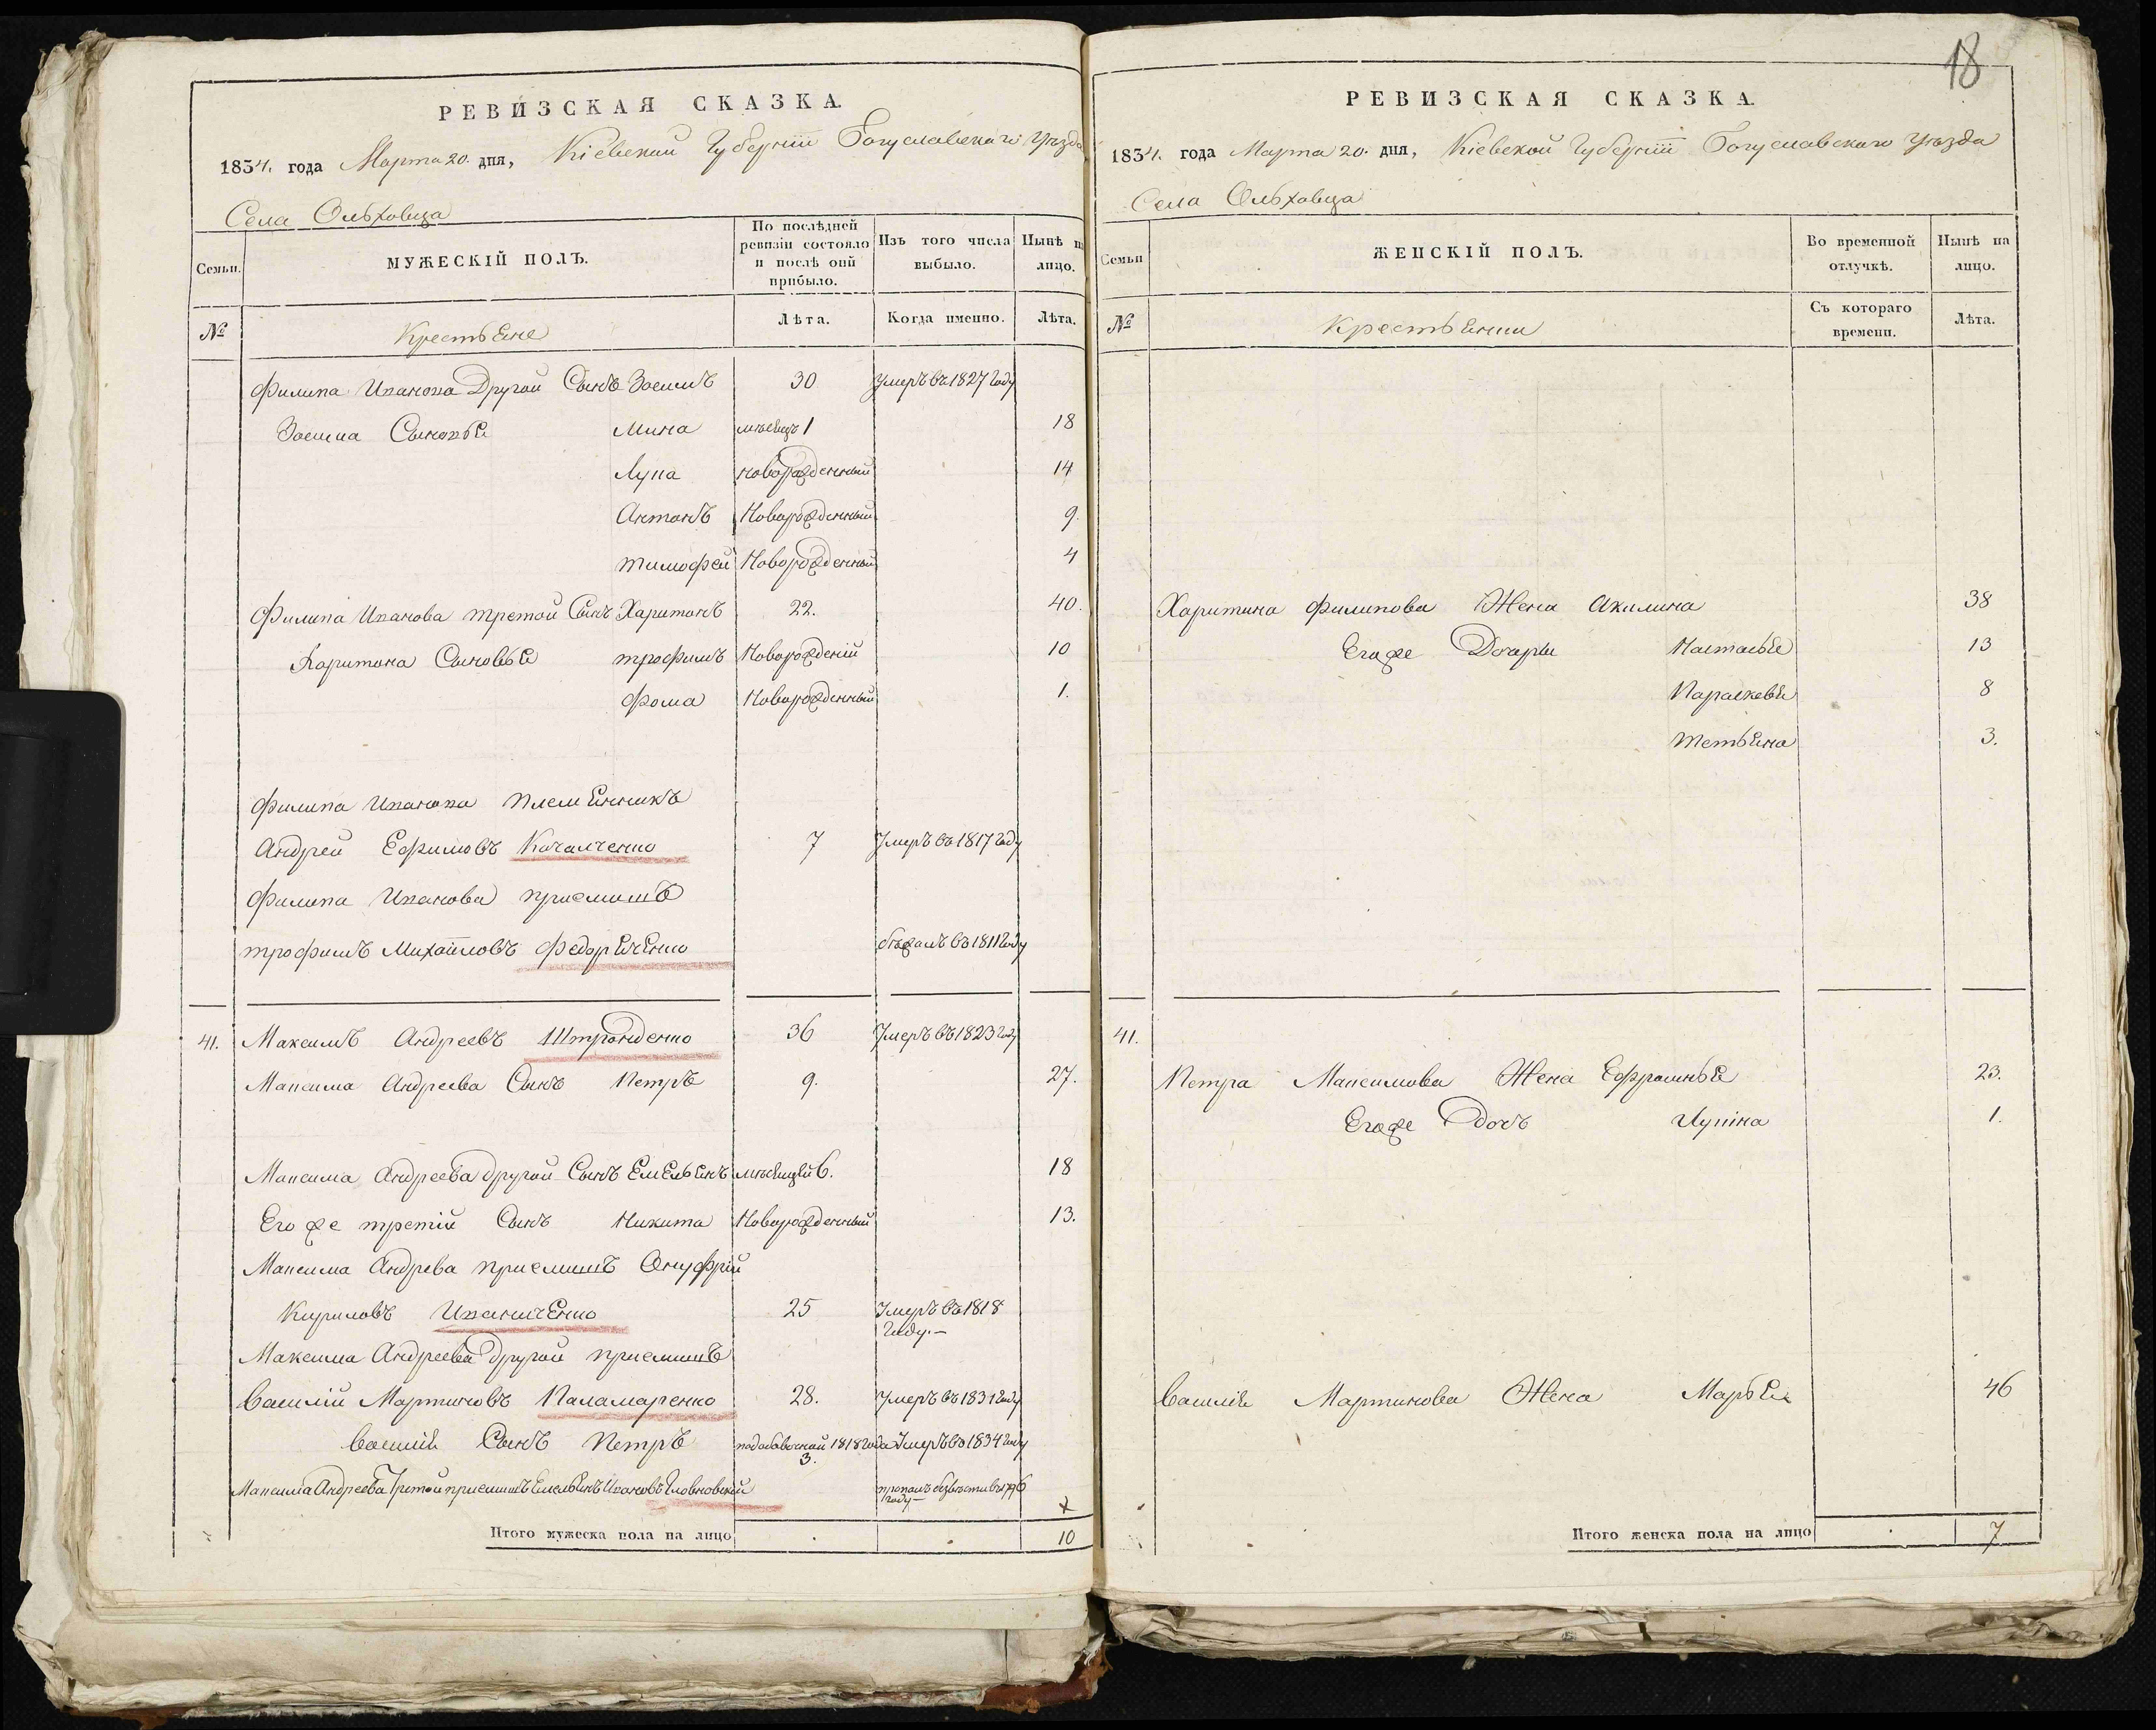 РЕВИЗСКАЯ СКАЗКА.
1834. года Марта 20. дня, Кіевской Губерніи Богуславскаго Уѣзда
Села Ольховца
Семьи.
МУЖЕСКІЙ ПОЛЪ.
По послѣдней ревизіи состояло и послѣ оній прибыло.
Изъ того числа выбыло.
Нынѣ на лицо.
№
Крестьяне
Лѣта.
Когда именно.
Лѣта.
Филипа Иванова Другой Сынъ Зосимъ 30 Умеръ въ 1827 году
Зосима Сыновья Мина мѣсяцъ 1 18
Лука новорожденный 14
Антонъ Новорожденный 9.
тимофей Новорожденный 4
Филипа Иванова третой Сынъ Харитонъ 22. 40.
Харитона Сыновья трофимъ Новорожденій 10
Фома Новорожденный 1.
Филипа Иванова племянникъ
Андрей Ефимовъ 7 Умеръ въ 1817 году
Филипа Иванова приемишъ
трофимъ Михайловъ Федоряченко бѣжалъ въ 1811 году
41. Максимъ Андреевъ Штронденко 36 Умеръ въ 1823 году
Максима Андреева Сынъ Петръ 9. 27.
Максима Андреева другой Сынъ Емельянъ мѣсяцей 6. 18
Его же третій Сынъ Никита Новорожденный 13.
Максима Андрева приемишъ Онуфрій
Кириловъ Иваниченко 25 Умеръ въ 1818
году.—
Максима Андреева другой приемишъ
Василій Мартиновъ Паламаренко 28. Умеръ въ 1831 году
Василія Сынъ Петръ подобавочной 1818 года 3. Умеръ въ 1834 году
Максима Андреева Третой приемишъ Емельянъ Ивановъ пропалъ безвѣсти въ
году—
Итого мужеска пола на лицо 10
18
РЕВИЗСКАЯ СКАЗКА.
1834. года Марта 20. дня, Кіевской Губерніи Богуславскаго Уѣзда
Села Ольховца
Семьи
ЖЕНСКІЙ ПОЛЪ.
Во временной отлучкѣ.
Нынѣ на лицо.
№
Крестьянки
Съ котораго времени.
Лѣта.
Харитина Филипова Жена Акилина 38
Егоже Дочери Настасья 13
Параскевия 8
Тетьяна 3.
41.
Петра Максимова Жена Ефросинья 23.
Егоже Дочь 1.
Василія Мартинова Жена Марья 46
Итого женска пола на лицо 7